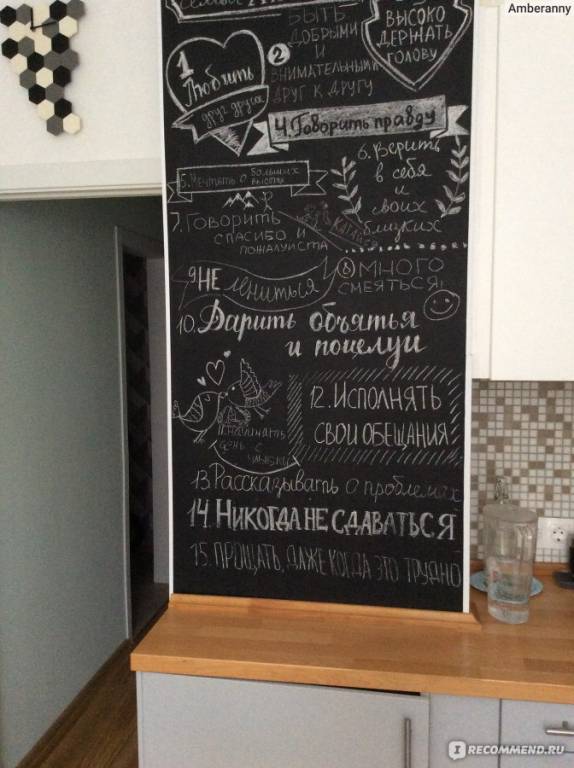 Amberanny
1
Любить
друг друга
2
БЫТЬ
ДОБРЫМИ
И
ВНИМАТЕЛЬНЫМИ
ДРУГ К ДРУГУ
ВЫСОКО
ДЕРЖАТЬ
ГОЛОВУ
4. Говорить правду
5. Мечтать о больших
6. Верить
в себя
и
своих
близких
7. Говорить
СПАСИБО И
ПОЖАЛУЙСТА
8 МНОГО
СМЕЯТЬСЯ!
9 НЕ лениться
10. Дарить объятья
и поцелуи
день с
12. ИСПОЛНЯТЬ
СВОИ ОБЕЩАНИЯ
13 Рассказывать о проблемах
14. НИКОГДА НЕ СДАВАТЬСЯ
15. ПРОЩАТЬ, ДАЖЕ КОГДА ЭТО ТРУДНО
RECOMMEND.RU